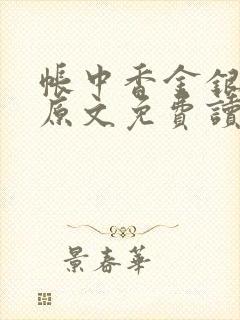 帳中香金銀
原文免費讀
景春華